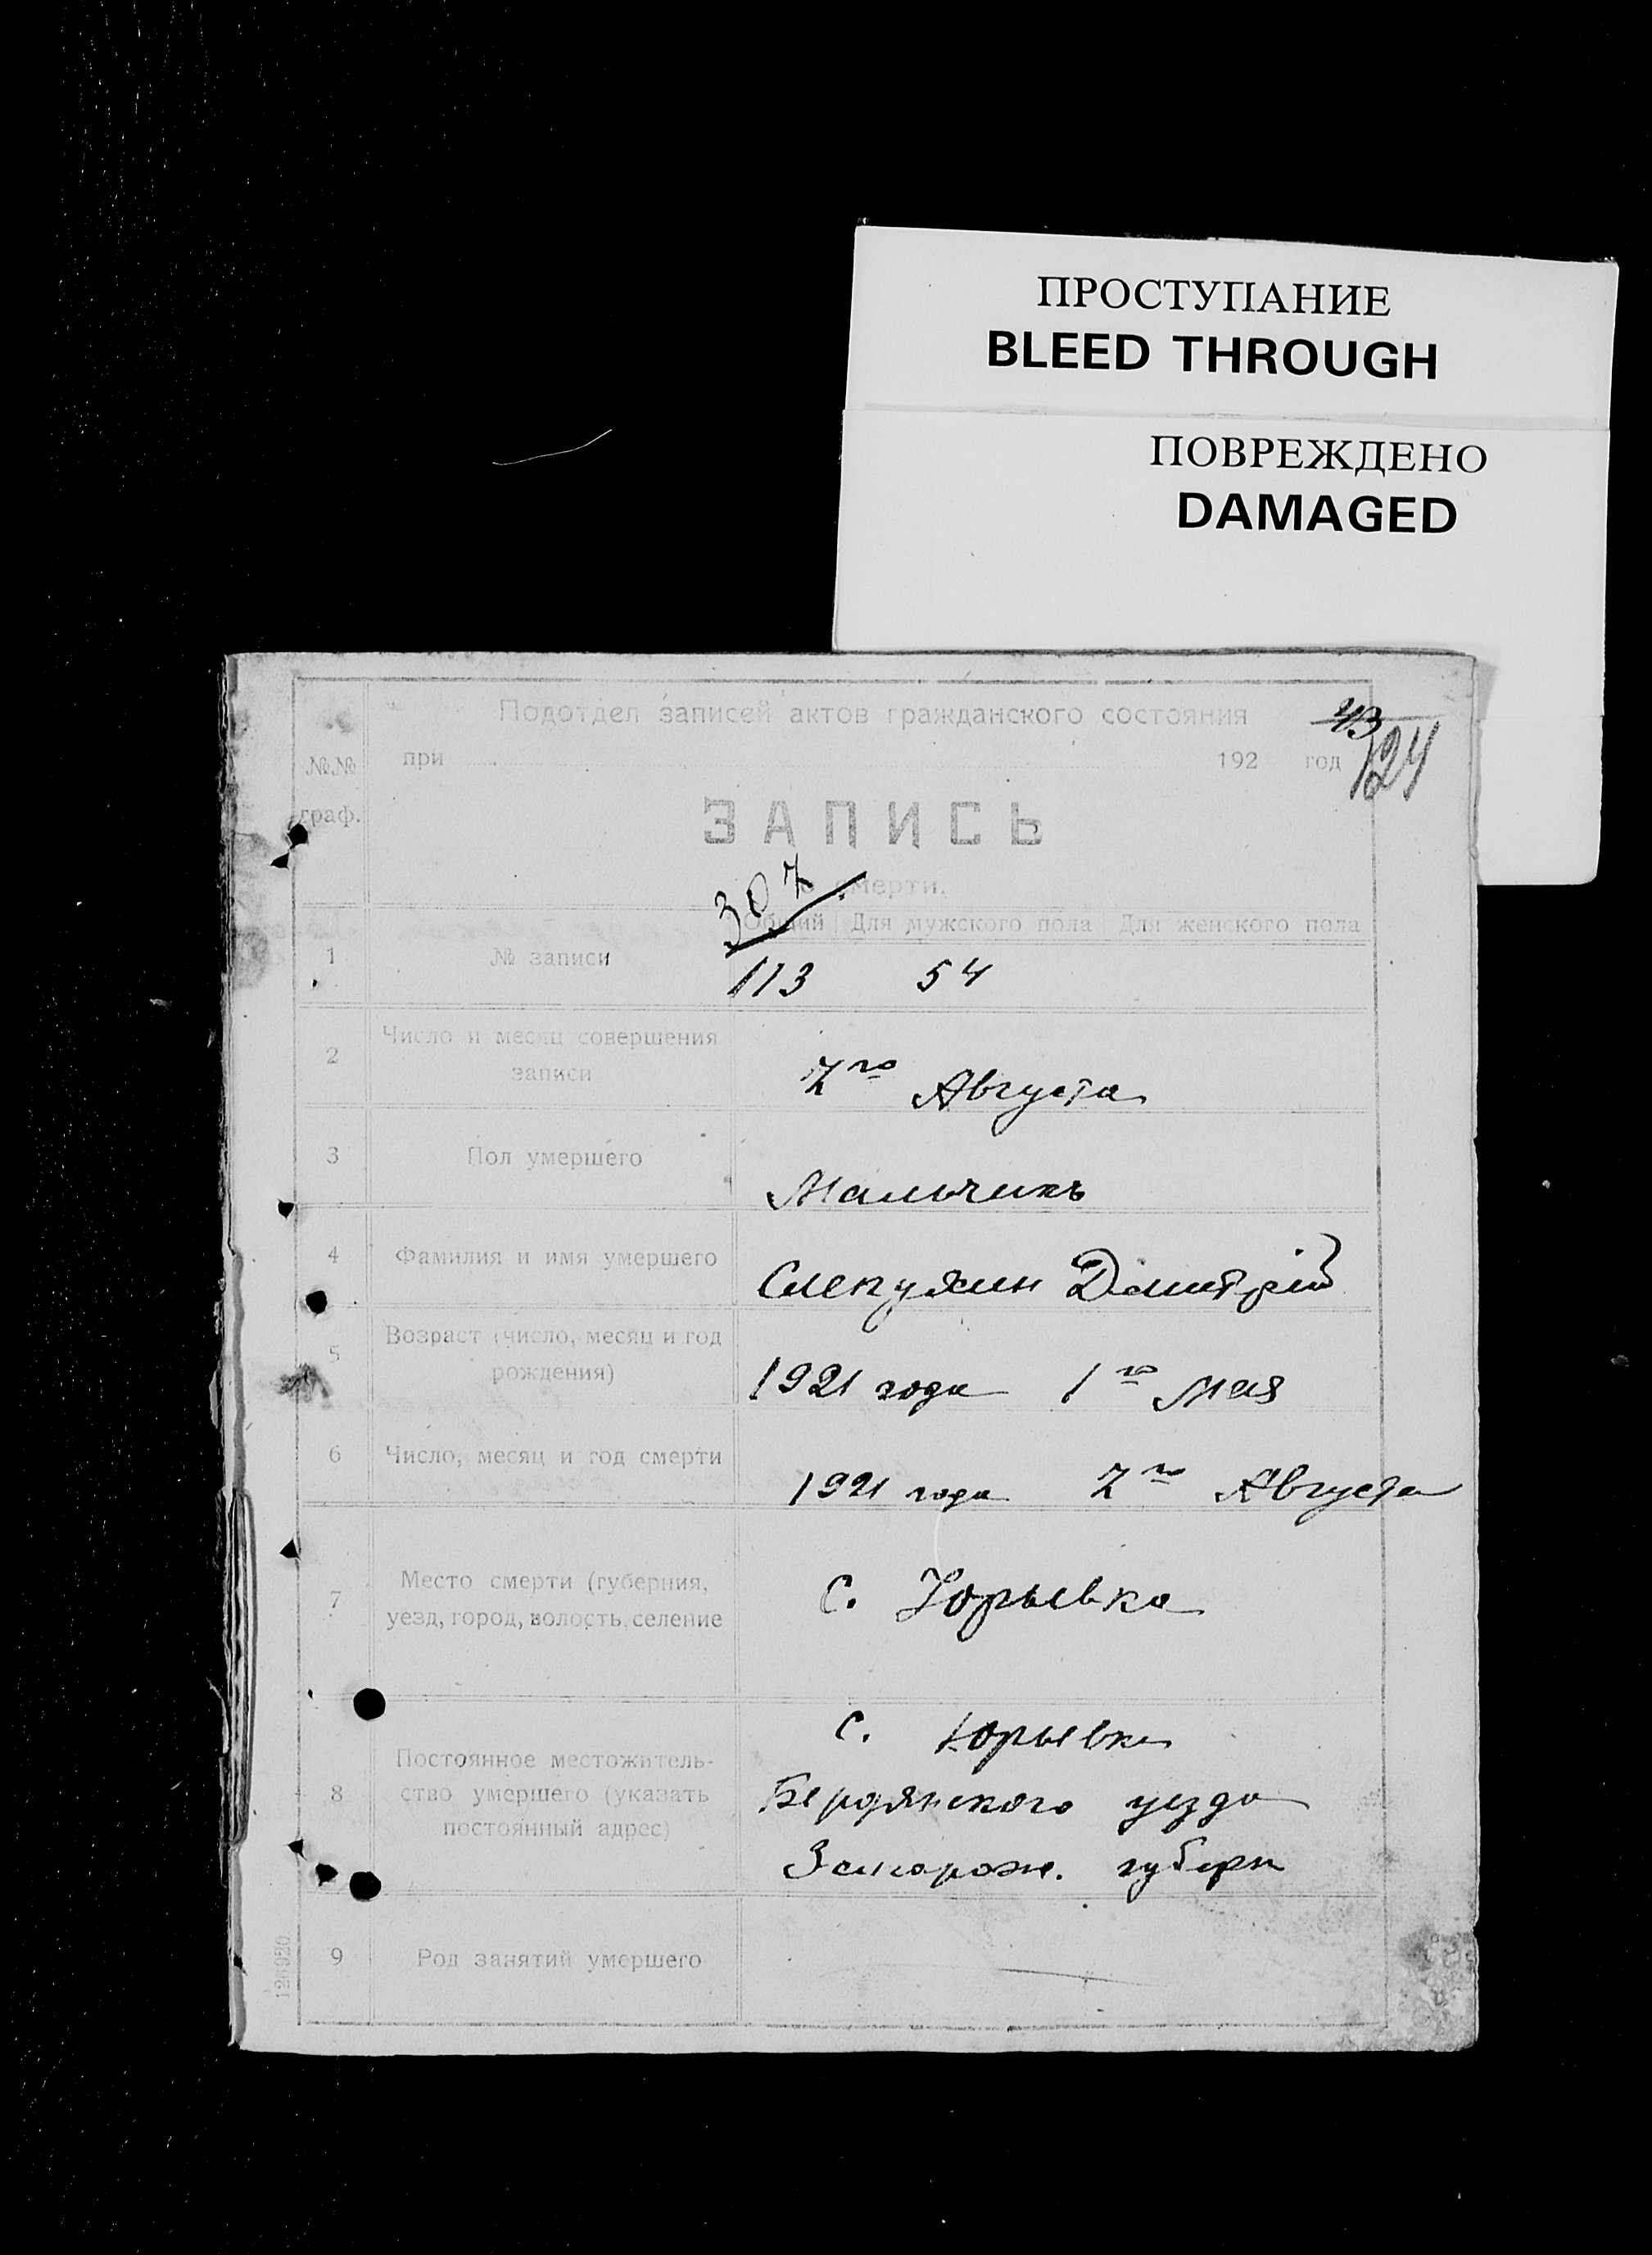 ПРОСТУПАНИЕ
BLEED THROUGH
ПОВРЕЖДЕНО
DAMAGED
43
124
Подотдел записей актов гражданского состояния
при 192 год
№№
граф.
ЗАПИСЬ
о смерти.
307
Общий Для мужского пола Для женского пола
1 № записи 113 54
2 Число и месяц совершения
записи
7го Августа
3 Пол умершего
Мальчикъ
4 Фамилия и имя умершего
Слепухин Дмитрій
5 Возраст (число, месяц и год
рождения)
1921 года 1го Мая
6 Число, месяц и год смерти
1921 года 7го Августа
7 Место смерти (губерния,
уезд, город, волость, селение
С. Юрьевка
8 Постоянное местожитель-
ство умершего (указать
постоянный адрес)
С. Юрьевка
Бердянского уезда
Запорож. губерн
9 Род занятий умершего